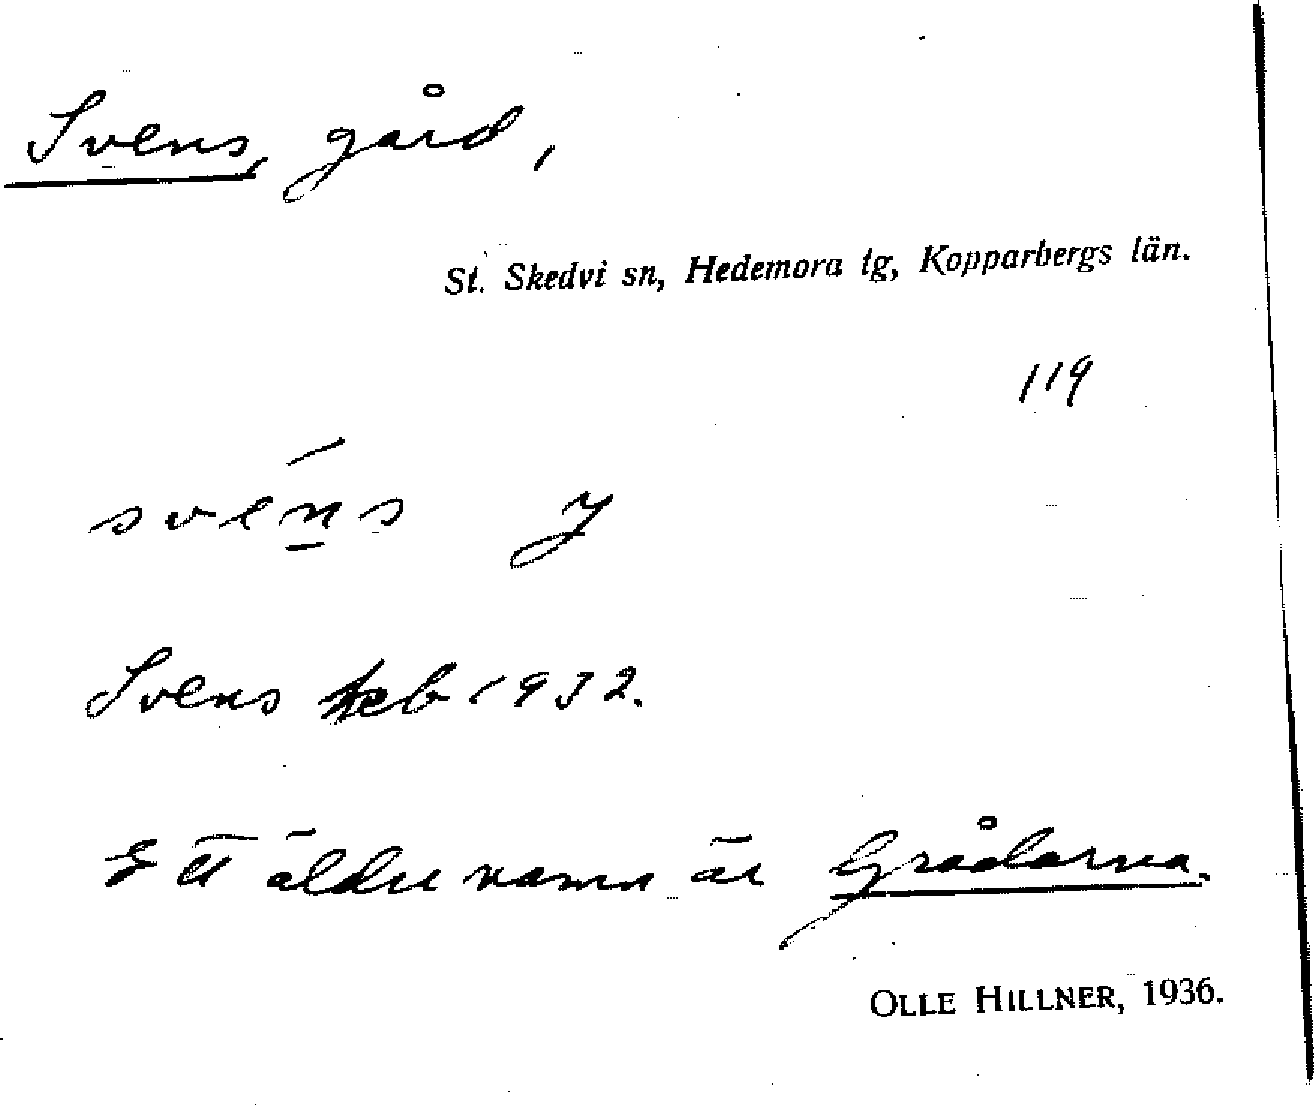 Svens, gård,
St. Skedvi sn, Hedemora tg, Kopparbergs län.
119
svén̲s y
Svens heb 1932.
Ett äldre namn är Grådarna.
OLLE HILLNER, 1936.